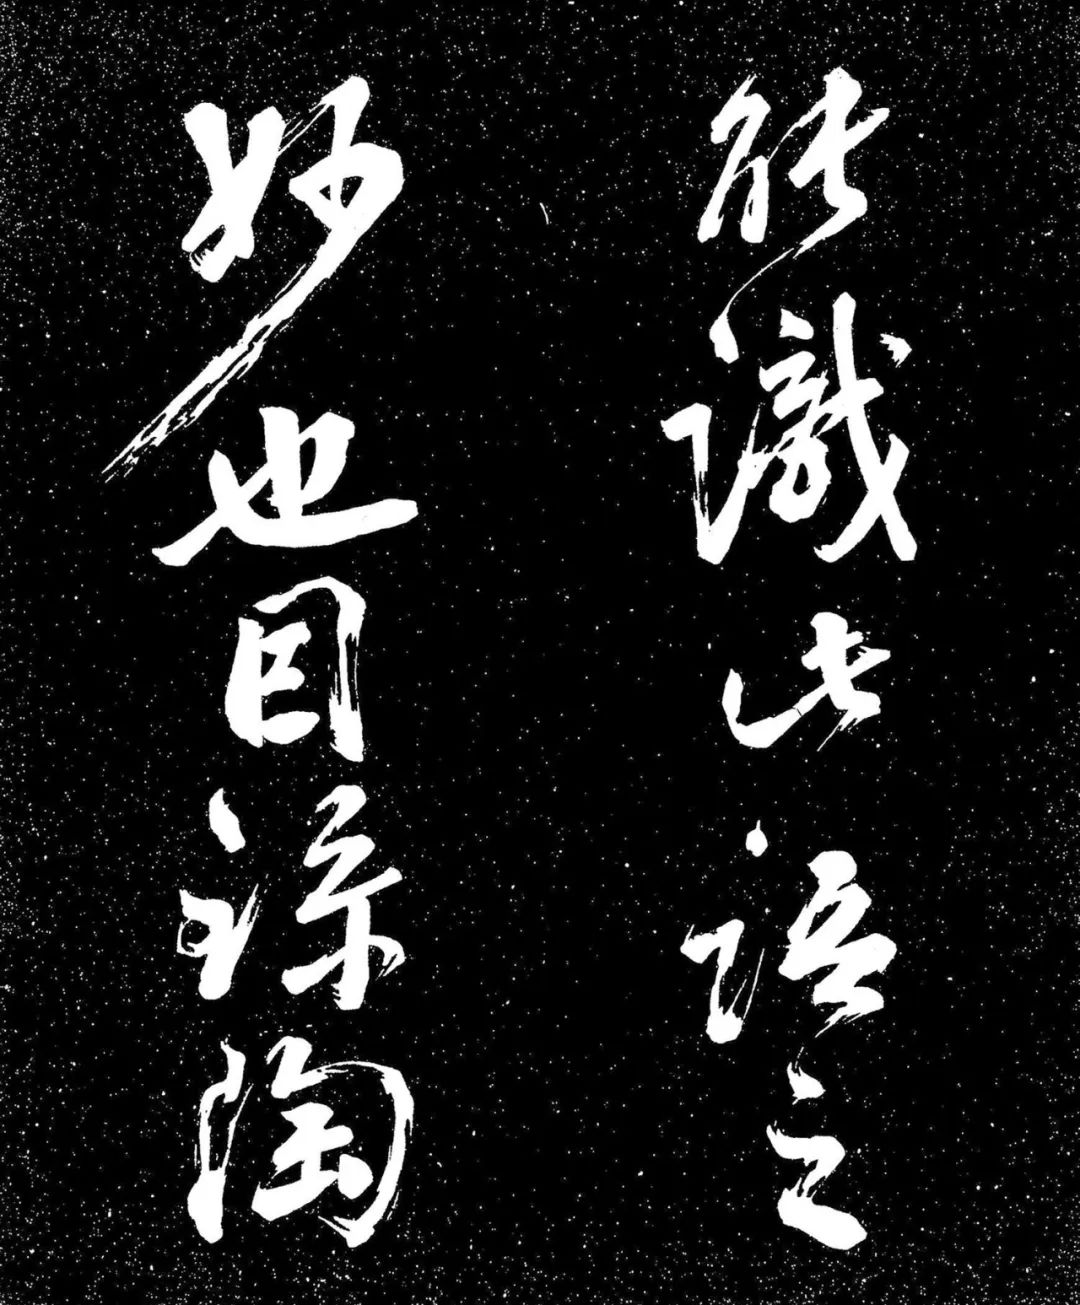 能識此語之
妙也因録陶